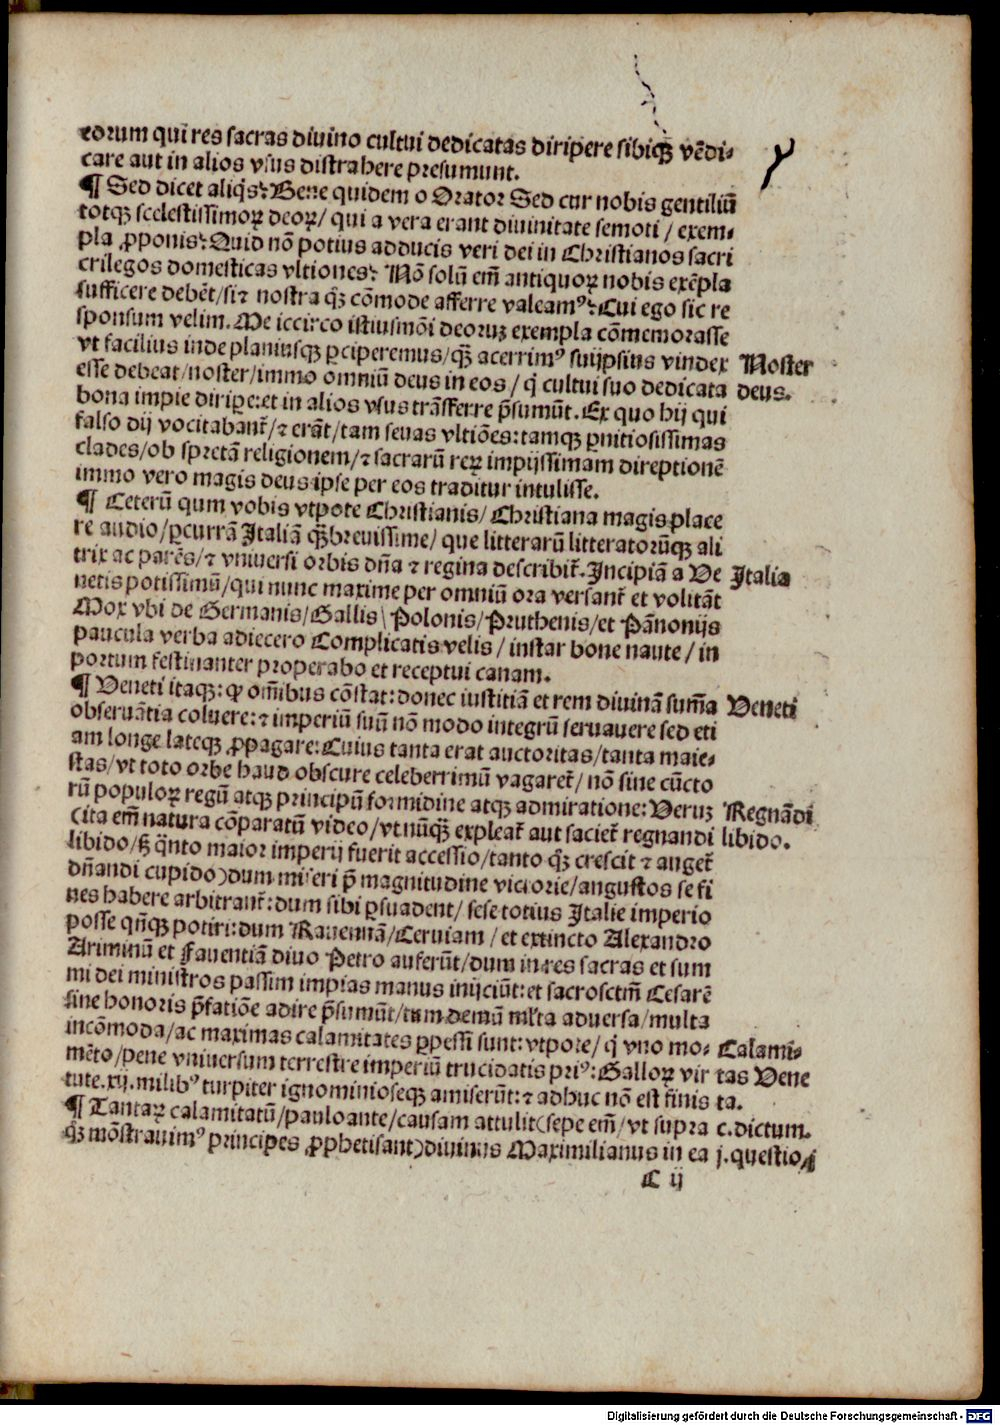 eorum qui res sacras diuino cultui dedicatas diripere sibiqꝫ vẽdi⸗
care aut in alios vsus distrahere presumunt.
¶ Sed dicet aliq̃s: Bene quidem o Orator Sed cur nobis gentiliũ
totqꝫ scelestissimoꝝ deoꝝ/ qui a vera erant diuinitate semoti / exem⸗
pla ꝓponis: Quid nõ potius adducis veri dei in Christianos sacri
crilegos domesticas vltiones: Nõ solũ em̃ antiquoꝝ nobis exẽpla
sufficere debẽt/ si ⁊ nostra q̃ꝫ cõmode afferre valeamꝰ: Cui ego sic re
sponsum velim. Me iccirco istiusmõi deoruꝫ exempla cõmemorasse
vt facilius inde planiusqꝫ ꝑciperemus/ qꝫ̃ acerrimꝰ suijpsius vindex Noster
esse debeat/ noster/ immo omniũ deus in eos / q̇ cultui suo dedicata deus.
bona impie diripe: et in alios vsus trãsferre p̃sumũt. Ex quo hij qui
falso dij vocitabant̃/ ⁊ erãt/ tam seuas vltiões: tamqꝫ ꝑnitiosissimas
clades/ ob spretã religionem/ ⁊ sacrarũ reꝝ impijssimam direptionẽ
immo vero magis deus ipse per eos traditur intulisse.
¶ Ceterũ qum vobis vtpote Christianis/ Christiana magis place
re audio/ ꝑcurrã Italiã qꝫ̃ breuissime/ que litterarũ litteratorũqꝫ ali
trix ac parẽs/ ⁊ vniuersi orbis dña ⁊ regina describit̃. Incipiã a Ve Italia
netis potissimũ/ qui nunc maxime per omniũ ora versant̃ et volitãt
Mox vbi de Germanis/ Gallis\ Polonis/ Pruthenis/ et Pãnonijs
paucula verba adiecero Complicatis velis / instar bone naute / in
portum festinanter properabo et receptui canam.
¶ Veneti itaqꝫ: ꝙ om̃ibus cõstat: donec iustitiã et rem diuinã sum̃a Veneti
obseruãtia coluere: ⁊ imperiũ suũ nõ modo integrũ seruauere sed eti
am longe lateqꝫ ꝓpagare: Cuius tanta erat auctoritas/ tanta maie⸗
stas/ vt toto orbe haud obscure celeberrimũ vagaret̃/ nõ sine cũcto
rũ populoꝝ regũ atqꝫ principũ formidine atqꝫ admiratione: Veruꝫ Regnãdi
cita em̃ natura cõparatũ video/ vt nũqꝫ̃ expleat̃ aut saciet̃ regnandi libido.
libido/ sꝫ q̃nto maior imperij fuerit accessio/ tanto q̃ꝫ crescit ⁊ auget̃
dñandi cupido) dum miseri p̃ magnitudine victorie/ angustos se fi
nes habere arbitrant̃: dum sibi ꝑsuadent/ sese totius Italie imperio
posse qñqꝫ potiri: dum Rauennã/ Ceruiam / et extincto Alexandro
Ariminũ et Fauentiã diuo Petro auferũt/ dum in res sacras et sum
mi dei ministros passim impias manus inijciũt: et sacrosctm̃ Cesarẽ
sine honoris p̃fatiõe adire p̃sumũt/ tum demũ ml̃ta aduersa/ multa
incõmoda/ ac maximas calamitates ꝑpessi sunt: vtpote/ q̇ vno mo⸗ Calami⸗
mẽto/ pene vniuersum terrestre imperiũ trucidatis priꝰ: Galloꝝ vir tas Vene
tute. xij. milibꝰ turpiter ignominioseqꝫ amiserũt: ⁊ adhuc nõ est finis ta.
¶ Tantaꝝ calamitatũ/ paulo ante/ causam attulit (sepe em̃/ vt supra c. dictum.
q̃ꝫ mõstrauimꝰ principes ꝓphetisant) diuinus Maximilianus in ea j. questio⸗
C ij
Digitalisierung gefördert durch die Deutsche Forschungsgemeinschaft - DFG